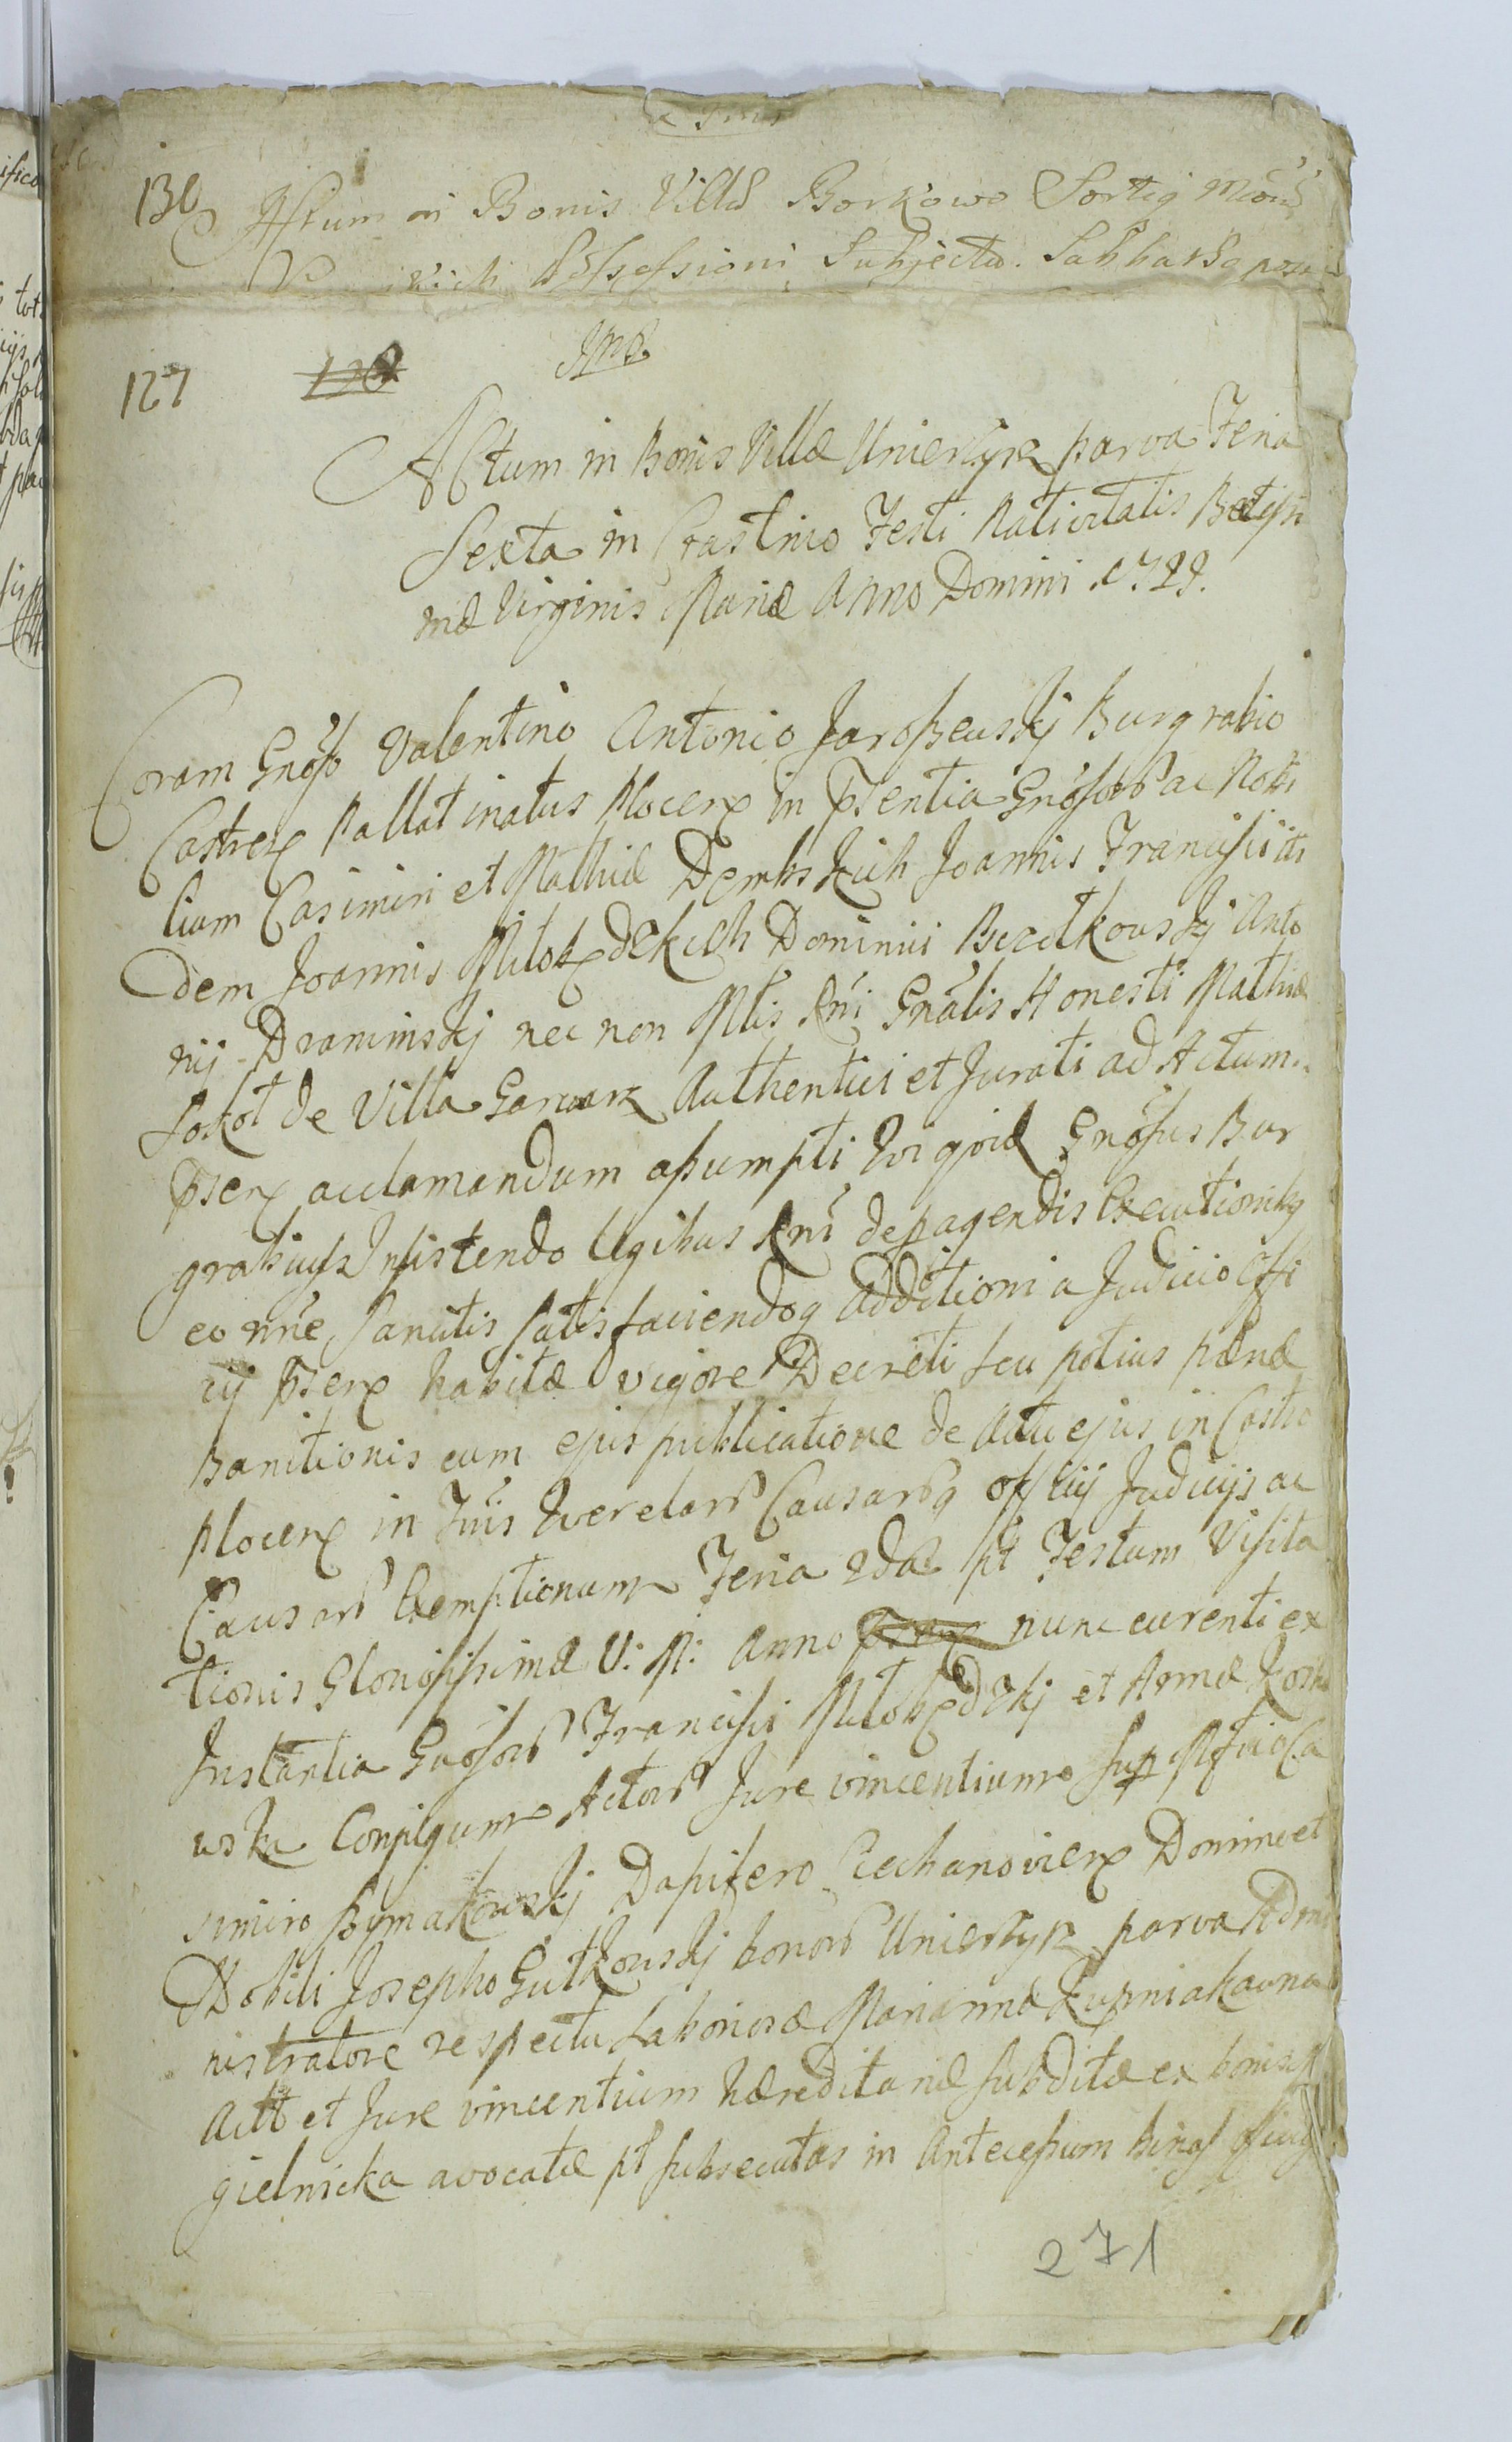 130 Actum in Bonis Villæ Borkowo Sortiq
Possessioni Subjectæ. Sabbatho
127
Ima
Actum in Bonis Villæ Unierzysz parva Feria
Sexta in Crastino Festi Nativitatis Beatissi
mæ Virginis Mariæ Anno Domini 1729.
Coram Gnoso Valentino Antonio Jaroszewskj Burgrabio
Castren Pallatinatus Plocen in Psentia Gnosorb ac Nobi
lium Casimiri et Mathiæ Dembskich Joannis Francisci iti
dem Joannis Milobędzkich Dominici Bieolkowskj Anto
nij Draminskj nec non Mlis Rni Gnalis Honesti Mathiæ
Sokoł de Villa Garwarz Authentici et Jurati ad Actum
Psens acclamandum assumpti Qui quid Gnosus Bur
grabius Insistendo Legibus Rni de peragendis Executionibq
eo nñe Sancitis satisfaciendoq additioni a Judicio Offi
cij Psens habitæ vigore Decreti seu potius pænæ
Banitionis cum ejus publicatione de Actu ejus in Castro
Plocen in Tnis Querelarb Causarbq officij Judicijs ac
Causarb Exemptionum Feria 2da pt Festum Visita
tionis Gloriosissimæ V: M: Anno nunc curenti ex
Instantia Gnosorb Francisci Milobędzkj et Annæ
wska Conjugum Actorb Jure vincentium sup Mfico Ca
simiro Szymakowskj Dapifero Ciechanovien Domino et
Nobili Josepho Gutkowskj bonorb Unierzysz parva Admi
nistratore respectu Laboriosæ Mariannæ Kupniakowna
Actt et Jure vincentium hæreditariæ subditæ ex bonis
gielnicka avocatæ pt subsecutas in Antecessum binas
271